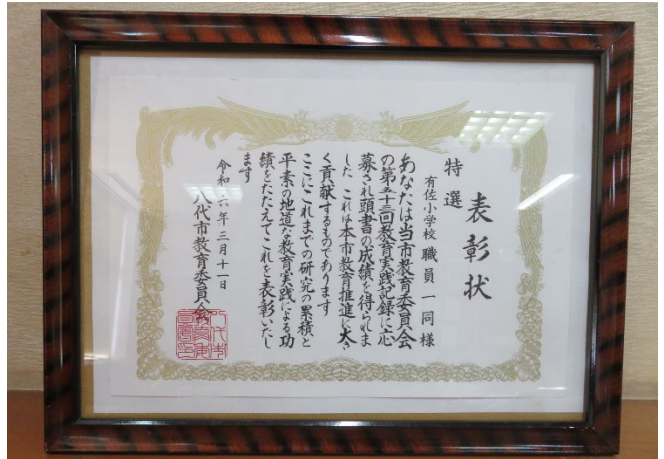 表彰状
特選
有佐小学校 職員一同様
あなたは当市教育委員会
の第五十三回教育実践記録に応
募され頭書の成績を得られま
した これは本市教育推進に大き
く貢献するものであります
ここにこれまでの研究の累積と
平素の地道な教育実践による功
績をたたえてこれを表彰いたし
ます
令和六年三月十一日
八代市教育委員会